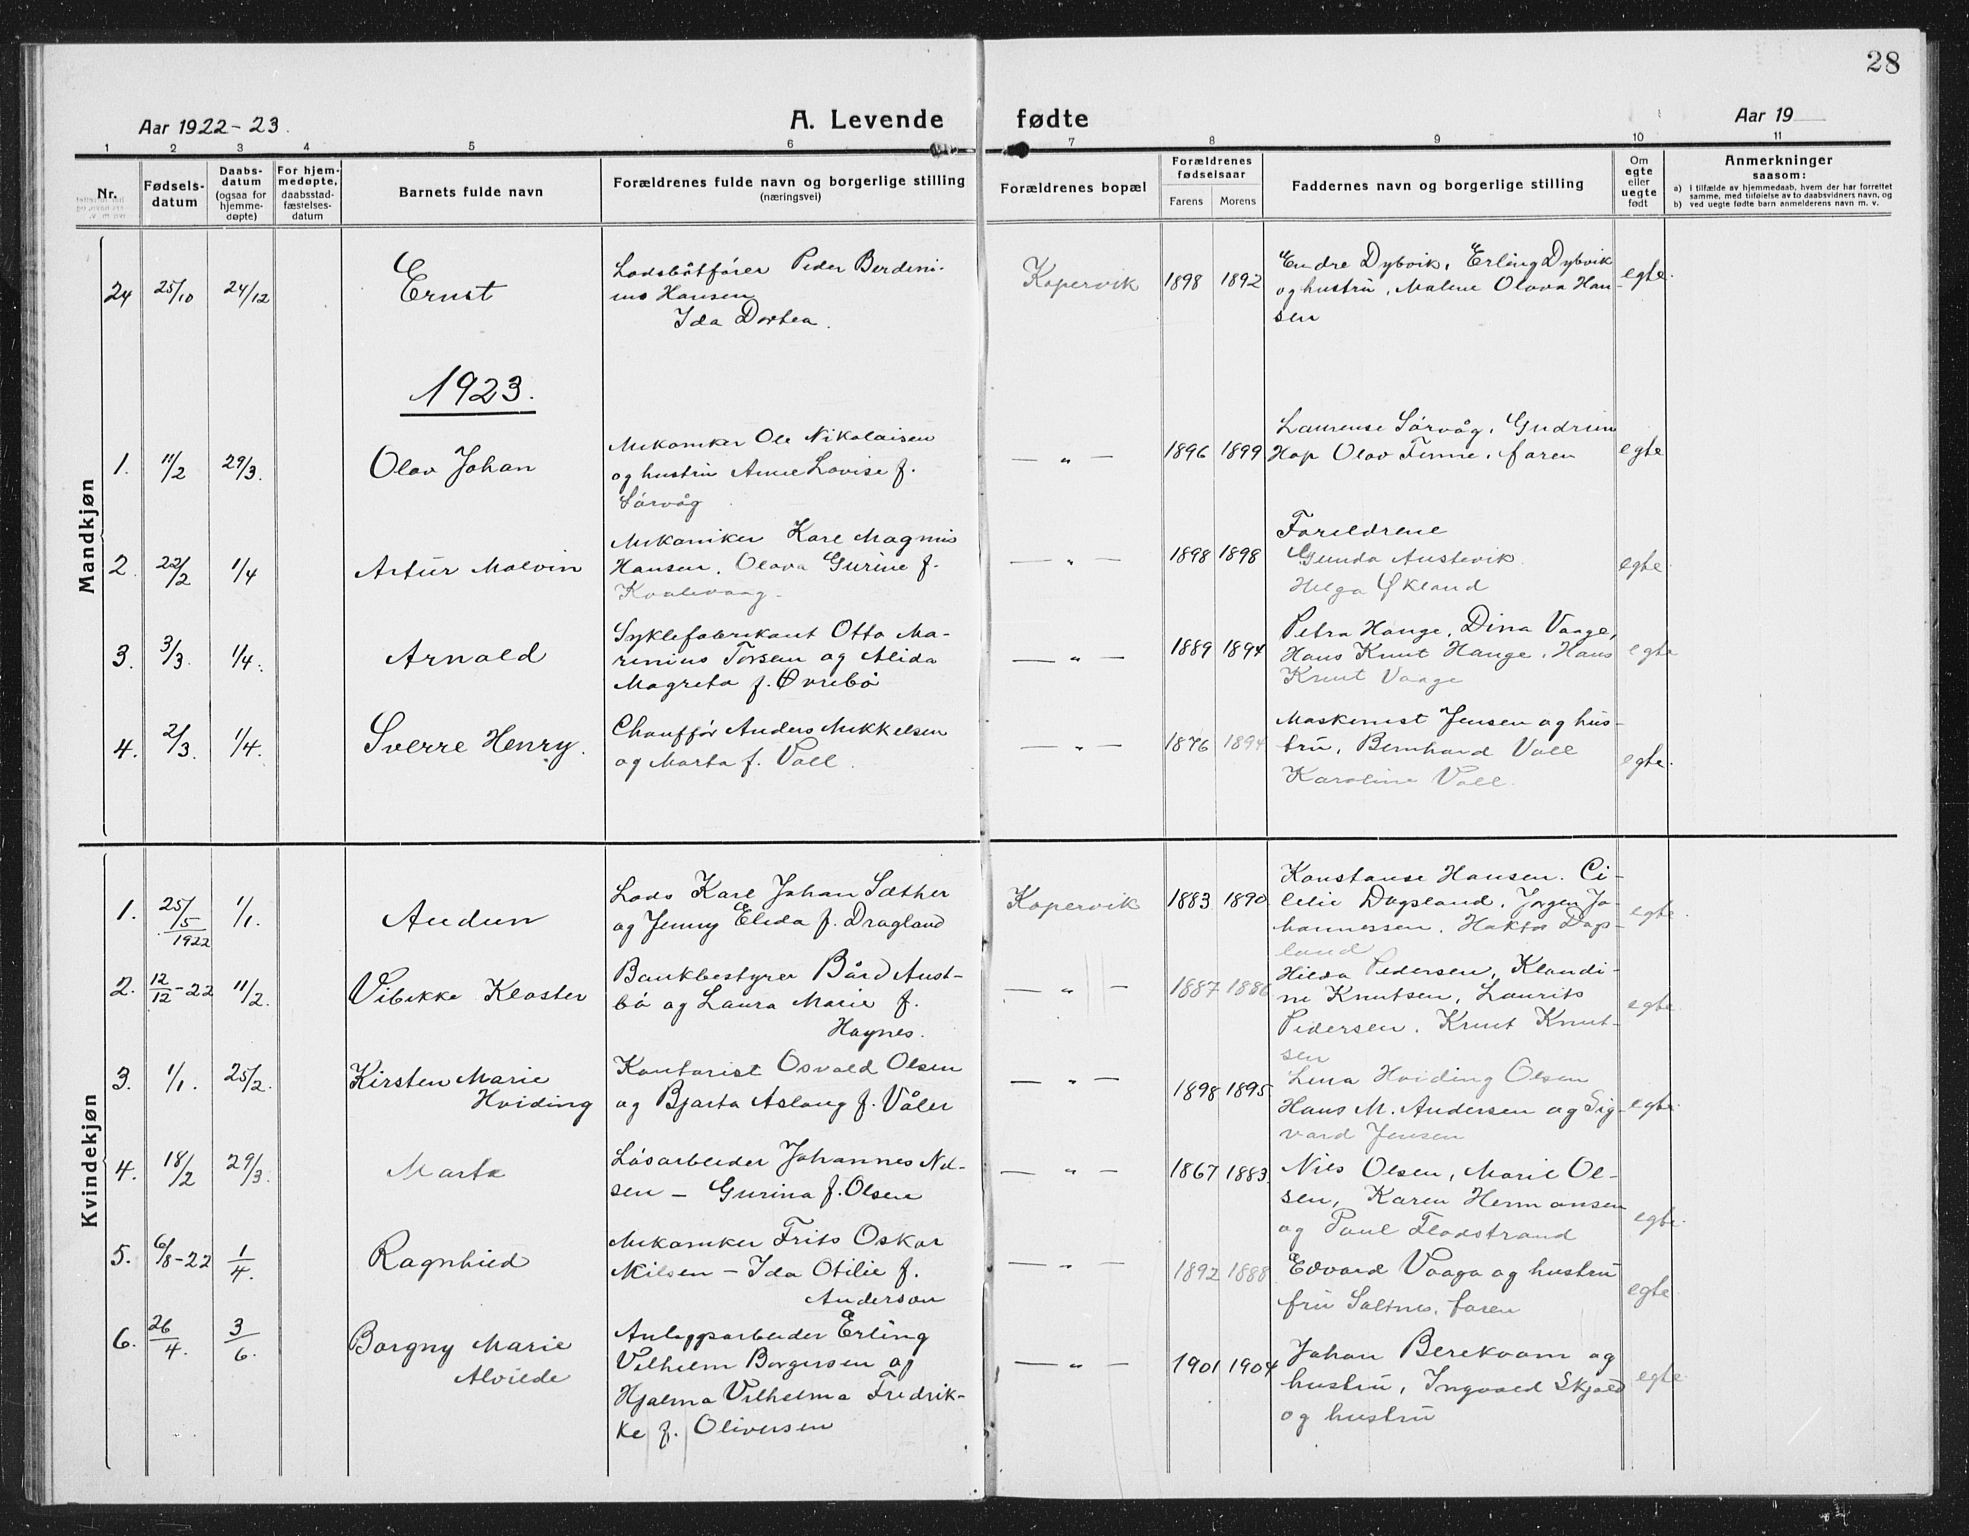 28
Aar 1922-23.
A. Levende fødte
Aar 19
1 2 3 4 5 6 7 8 9 10 11
Nr.
Fødsels-
datum
Daabs-
datum
(ogsaa for
hjemme-
døpte)
For hjem-
medøpte,
daabsstad-
fæstelses-
datum
Barnets fulde navn
Forældrenes fulde navn og borgerlige stilling
(næringsvei)
Forældrenes bopæl
Forældrenes
fødselsaar
Farens Morens
Faddernes navn og borgerlige stilling
Om
egte
eller
uegte
født
Anmerkninger
saasom:
a) I tilfælde av hjemmedaab, hvem der har forrettet
samme, med tilføielse av to daabsvidners navn, og
b) ved uegte fødte barn anmelderens navn m. v.
Mandkjøn
24 25/10 24/12 Ernst
Lodsbåtfører Peder Berdini-
us Hansen
Ida Dorthea.
Kopervik 1898 1892
Endre Dybvik, Erling Dybvik
og hustru, Malene Olava Han-
sen
egte.
1923.
1. 11/2 29/3. Olav Johan
Mekaniker Ole Nikolaisen
og hustru Anne Lovise f.
Sørvåg
— „ — 1896 1899
Laurense Sørvåg, Gudrun
Hop Olav Finne, faren
egte
2. 22/2 1/4 Artur Malvin
Mekaniker Karl Magnus
Hansen, Olava Gurine f.
Kvalevaag.
— „ — 1898 1898
Foreldrene
Gunda Austevik
Helga Økland
egte.
3. 3/3. 1/4. Arnold
Syklefabrikant Otto Ma-
rinius Torsen og Alida
Magreta f. Øvrebø
— „ — 1889 1894
Petra Hauge, Dina Vaage,
Hans Knut Hauge, Hans
Knut Vaage
egte
4. 2/3. 1/4. Sverre Henry.
Chauffør Anders Mikkelsen
og Marta f. Voll.
— „ — 1876 1894
Maskinist Jensen og hus-
tru, Bernhard Voll
Karoline Voll.
egte.
Kvindekjøn
1. 25/5 1922 1/1. Audun
Lods Karl Johan Sæther
og Jenny Elida f. Dragland
Kopervik 1883 1890
Konstanse Hansen. Ci-
cilie Dagsland, Jørgen Jo-
hannessen, Haktor Dags-
land
egte.
2. 12/12-22 11/2. Vibekke Kloster
Bankbestyrer Bård Aust-
bø og Laura Marie f.
Haynes.
— „ — 1887 1886
Hilda Pedersen, Klaudi-
ne Knutsen, Laurits
Pedersen. Knut Knut-
sen
egte.
3. 1/1. 25/2. Kirsten Marie
Hviding
Kontorist Osvald Olsen
og Bjarta Aslaug f. Våler
— „ — 1898 1895
Lena Hviding Olsen
Hans M. Andersen og Sig-
vard Jensen
egte.
4. 18/2 29/3. Marta
Løsarbeider Johannes Nil-
sen — Gurina f. Olsen
— „ — 1867 1883
Nils Olsen, Marie Ol-
sen, Karen Hermansen
og Paul Flodstrand
egte.
5. 6/8-22 1/4. Ragnhild
Mekaniker Frits Oskar
Nilsen — Ida Otilie f.
Anderson
— „ — 1892 1888
Edvard Vaaga og hustru
fru Saltnes, faren
egte
6. 26/4. 3/6. Borgny Marie
Alvilde
Anleggsarbeider Erling
Vilhelm Borgersen og
Hjalma Vilhelma Fredrik-
ke f. Oliversen
— „ — 1901 1904
Johan Berekvam og
hustru, Ingvald Skjold
og hustru
egte